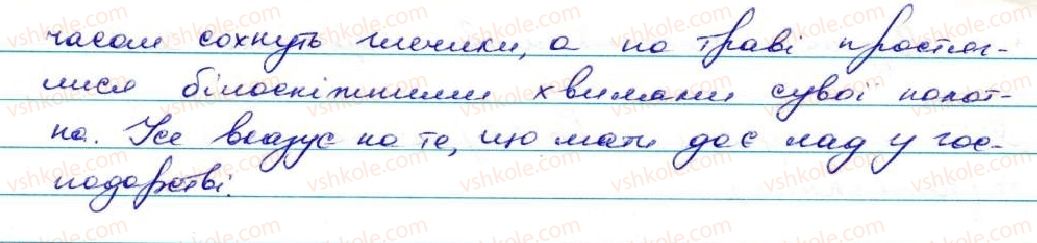 часом сохнуть глечики, а на траві простяг-
лися білосніжними хвилями сувої полот-
на. Усе вказує на те, що мати дає лад у гос-
подарстві.